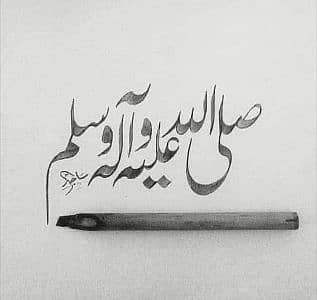 صلی الله علیه وآله وسلم